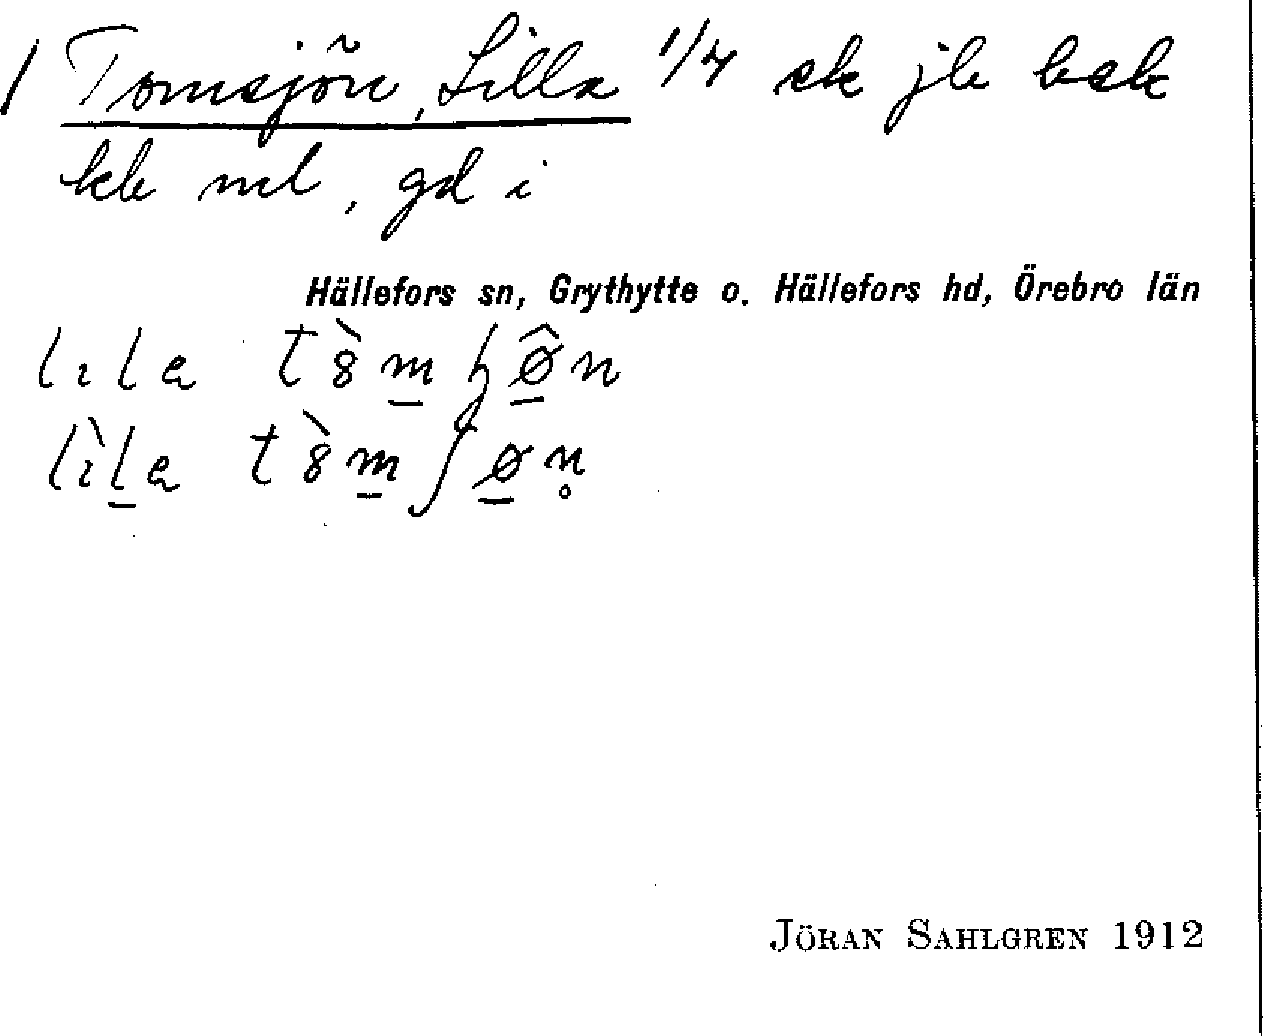 / Tomsjön, Lilla 1/4 sk jb bsk
kb ml, gd i
Hällefors sn, Grythytte o. Hällefors hd, Örebro län
lıla
lı̀l̲a
JÖRAN SAHLGREN 1912